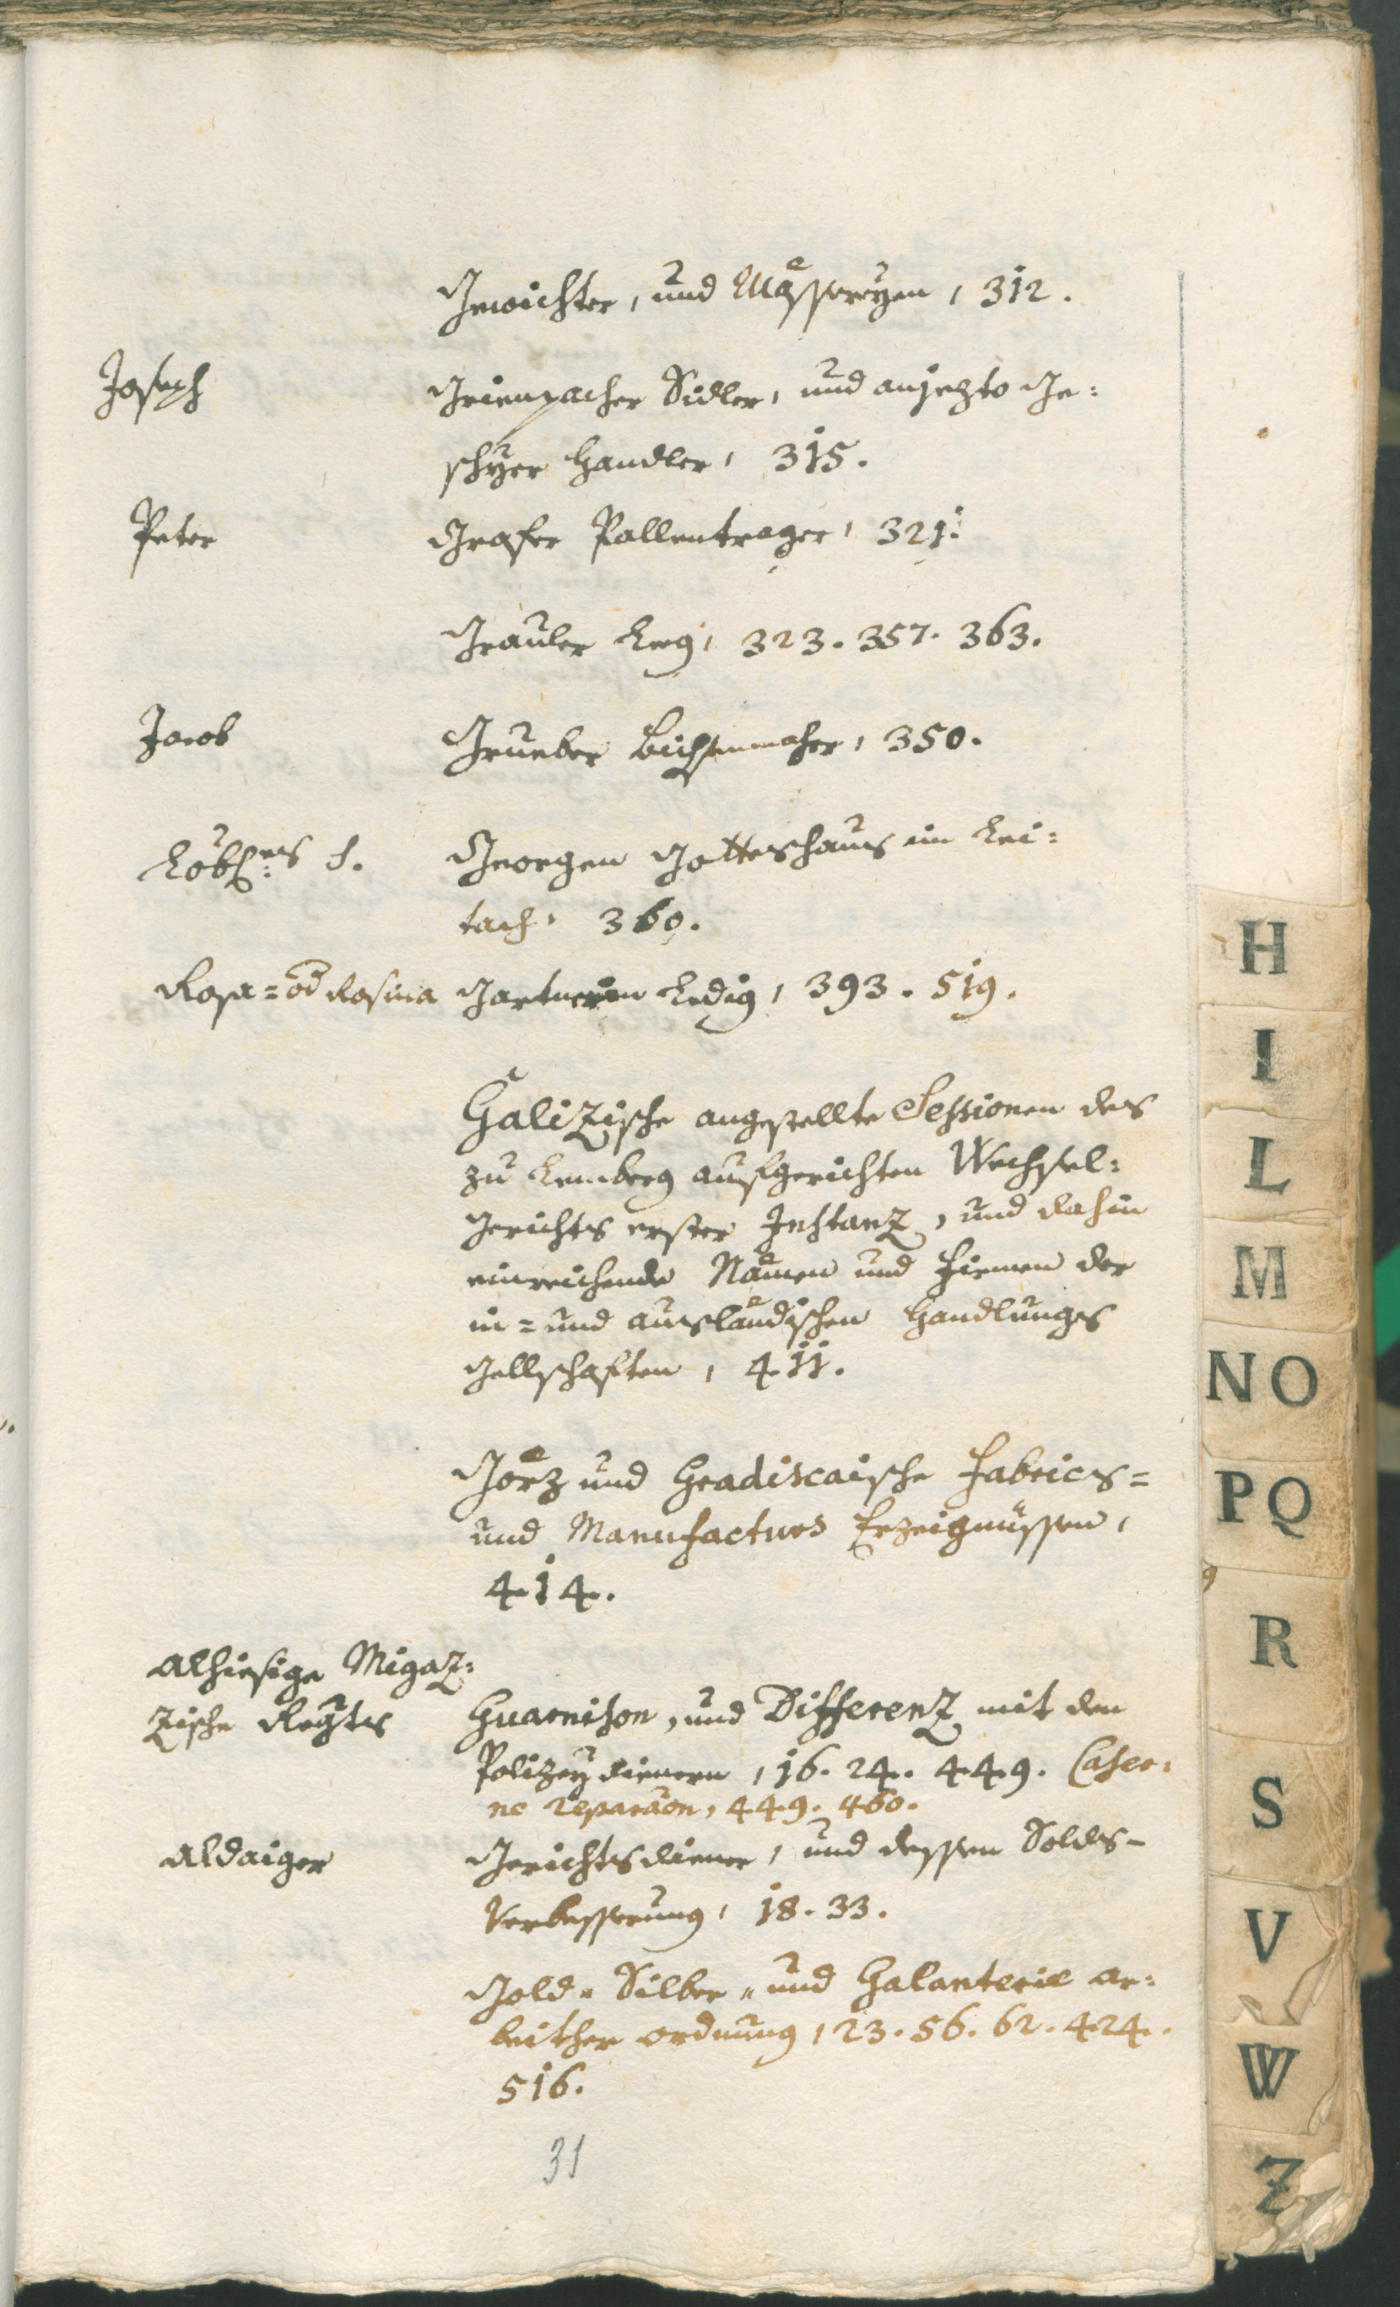 Gewichter, und Mässereyen, 312.
Joseph Grienpacher Sidler, und anjezto Ge=
schÿer Handler, 315.
Peter Graser Pallentrager, 321.
Grauler Leeg, 323. 357. 363.
Jacob Grueber Bichsenmacher, 350.
Löbl:es S. Georgen Gotteshaus im Lei=
tach, 360.
Rosa= od Rosina Gartnerin Ledig, 393. 519.
Galizische angestellte Sessionen des
zu Lemberg aufgerichten Wechsel=
Gerichts erster Instanz, und dahin
einreichende Nämen und Firmen der
in= und ausländischen Handlungs
Gesellschaften, 411.
Görz und Gradiscaische Fabrics=
und Manufacturs Erzeignussen,
414.
Alhiesige Migaz=
zische Regts Guarnison, und Differenz mit den
Polizey dienern, 16. 24. 449. Caser=
ne reparaon, 449. 460.
Aldaiger Gerichtsdiener, und dessen Solds-
Verbesserung, 18. 33.
Gold- Silber- und Galanterie Ar=
beither ordnung, 23. 56. 62. 424.
516.
31
H
I
L
M
NO
PQ
R
S
V
W
Z